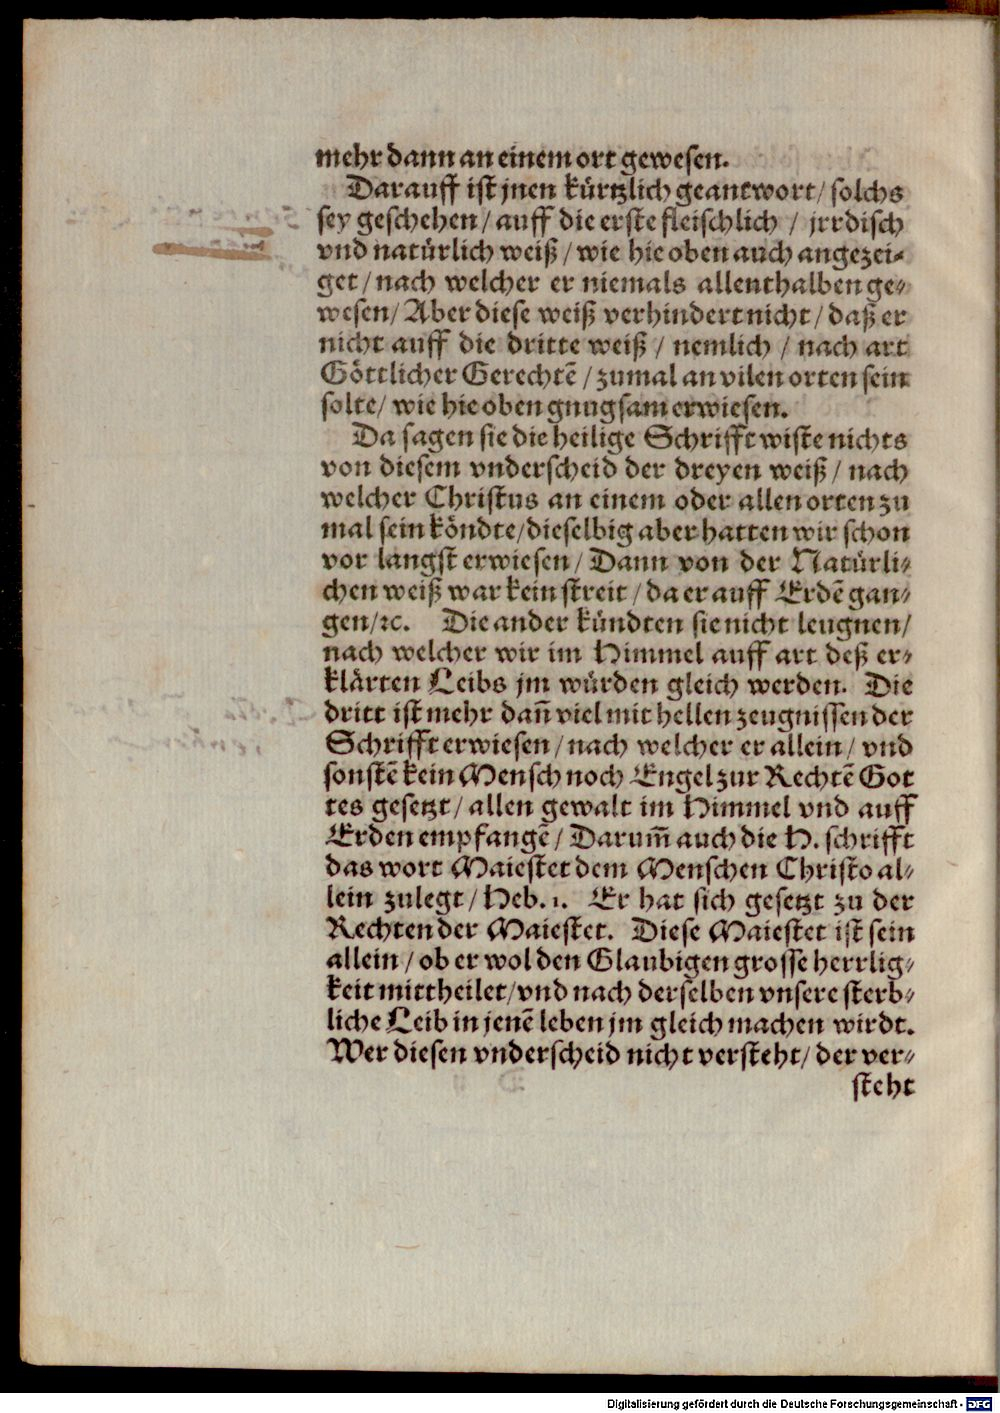 mehr dann an einem ort gewesen.
Darauff ist jnen kürtzlich geantwort/ solchs
sey geschehen/ auff die erste fleischlich / jrrdisch
vnd natürlich weiß/ wie hie oben auch angezei-
get/ nach welcher er niemals allenthalben ge-
wesen/ Aber diese weiß verhindert nicht/ daß er
nicht auff die dritte weiß / nemlich / nach art
Göttlicher Gerechtē / zumal an vilen orten sein
solte/ wie hie oben gnugsam erwiesen.
Da sagen sie die heilige Schrifft wiste nichts
von diesem vnderscheid der dreyen weiß / nach
welcher Christus an einem oder allen orten zu
mal sein köndte/ dieselbig aber hatten wir schon
vor langst erwiesen/ Dann von der Natürli-
chen weiß war kein streit / da er auff Erdē gan-
gen/ ꝛc. Die ander kündten sie nicht leugnen/
nach welcher wir im Himmel auff art deß er-
klärten Leibs jm würden gleich werden. Die
dritt ist mehr dañ viel mit hellen zeugnissen der
Schrifft erwiesen/ nach welcher er allein/ vnd
sonstē kein Mensch noch Engel zur Rechtē Got
tes gesetzt/ allen gewalt im Himmel vnd auff
Erden empfangē/ Darum̃ auch die H. schrifft
das wort Maiestet dem Menschen Christo al-
lein zulegt/ Heb. 1. Er hat sich gesetzt zu der
Rechten der Maiestet. Diese Maiestet ist sein
allein/ ob er wol den Glaubigen grosse herrlig-
keit mittheilet/ vnd nach derselben vnsere sterb-
liche Leib in jenē leben jm gleich machen wirdt.
Wer diesen vnderscheid nicht versteht/ der ver-
steht
Digitalisierung gefördert durch die Deutsche Forschungsgemeinschaft - DFG